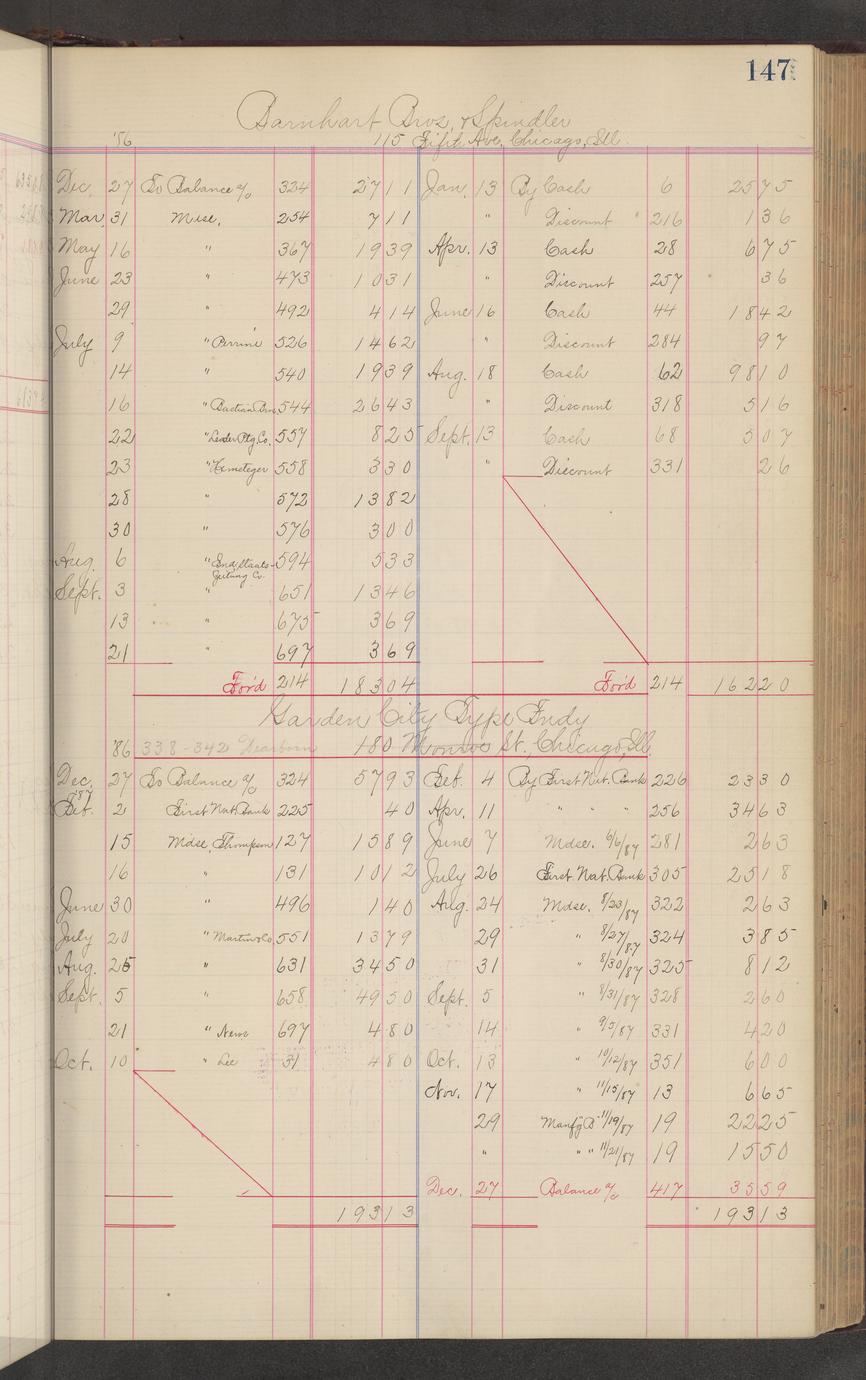 147
Barnhart Bros. & Spindler
'86 115 Fifth Ave. Chicago, Ill.
Dec. 27 To Balance a/c 324 27 11 Jan. 13 By Cash 6 25 75
Mar. 31 Mdse. 254 7 11 " Discount " 216 1 36
May 16 " 367 19 39 Apr. 13 Cash 28 6 75
June 23 " 473 10 31 " Discount 257 36
29 " 492 4 14 June 16 Cash 44 18 42
July 9 " Perrine 526 14 62 " Discount 284 97
14 " 540 19 39 Aug. 18 Cash 62 98 10
16 " Bastian Bros. 544 26 43 " Discount 318 5 16
22 " Leader Ptg. Co. 557 8 25 Sept. 13 Cash 68 5 07
23 " 558 3 30 " Discount 331 26
28 " 572 13 82
30 " 576 3 00
Aug. 6 " Ind. Staats- 594 5 33
Zeitung Co.
Sept. 3 " 651 13 46
13 " 675 3 69
21 " 697 3 69
For'd 214 183 04 For'd 214 162 20
Garden City Type Fndy
'86 338-342 Dearborn 180 Monroe St., Chicago, Ill.
Dec. 27 To Balance a/c 324 57 93 Feb. 4 By First Nat. Bank 226 23 30
'87
Feb. 2 First Nat. Bank 225 40 Apr. 11 " " " 256 34 63
15 Mdse. Thompson 127 15 89 June 7 Mdse. 6/6/87 281 2 63
16 " 131 10 12 July 26 First Nat. Bank 305 25 18
June 30 " 496 1 40 Aug. 24 Mdse. 8/23/87 322 2 63
July 20 " Martin & Co. 551 13 79 29 " 8/27/87 324 3 85
Aug. 25 " 631 34 50 31 " 8/30/87 325 8 12
Sept. 5 " 658 49 50 Sept. 5 " 8/31/87 328 2 60
21 " News 697 4 80 14 " 9/5/87 331 4 20
Oct. 10 " Lee 31 4 80 Oct. 13 " 10/12/87 351 6 00
Nov. 17 " 11/15/87 13 6 65
29 Manfg 11/19/87 19 22 25
" " " 11/21/87 19 15 50
Dec. 27 Balance a/c 417 35 59
193 13 193 13